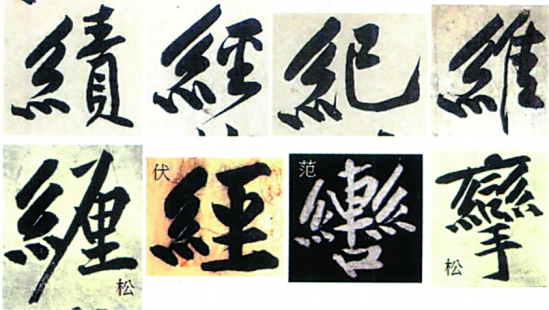 績 經 紀 維
纏 松 伏 經 范 轡 攣 松